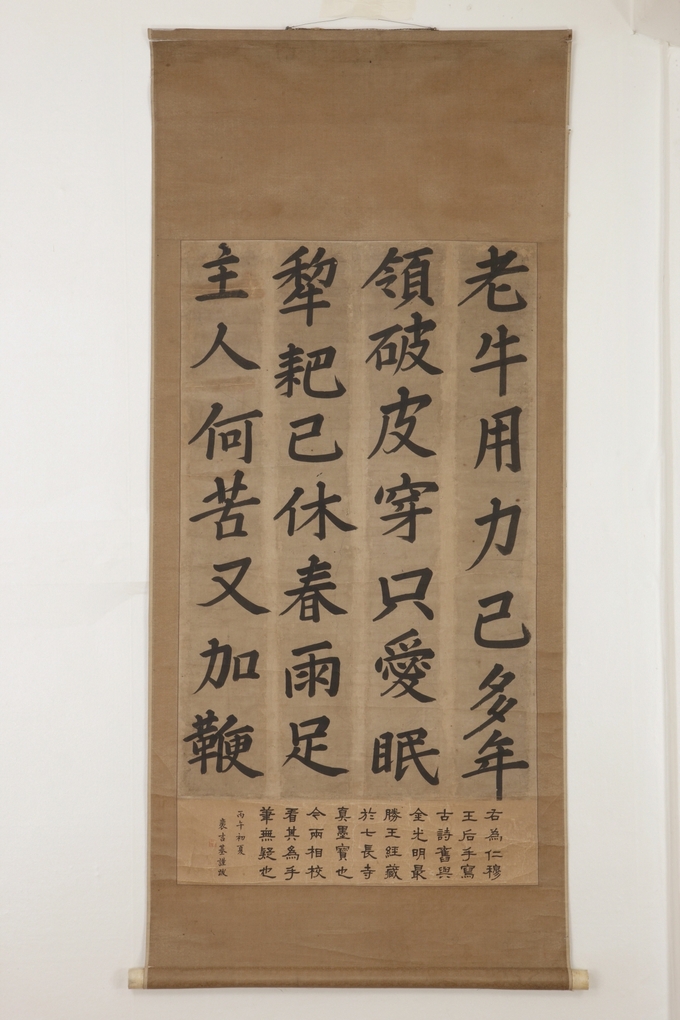 老牛用力已多年
領破皮穿只愛眠
犂耙已休春雨足
主人何苦又加鞭
右為仁穆
王后手寫
古詩舊與
金光明最
勝王経蔵
於七長寺
真墨寶也
今兩相校
看其為手
筆無疑也
丙午初夏
裵吉基謹跋